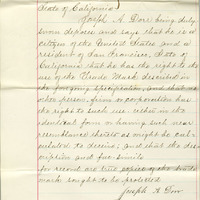 State of California
Joseph A. Dorr being duly
sworn deposes and says that he is a
citizen of the United States and a
resident of San Francisco, State of
California that he has the right to the
use of the Trade Mark described in
the foregoing specification, and that no
other person, firm or corporation has
the right to such use, either in the
identical form or having such near
resemblance thereto as might be cal-
culated to deceive; and that the des-
cription and fac-simile
for record are true copies of the trade
mark sought to be protected
Joseph A Dorr